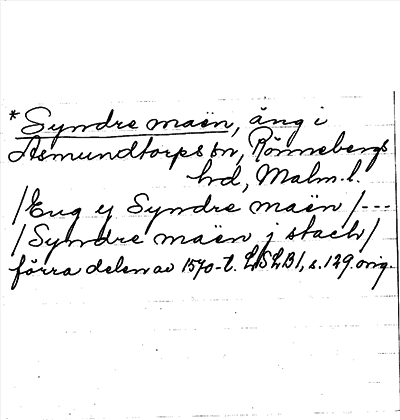 *Syndre maën, äng i
Asmundtorps sn, Rönnebergs
hd, Malm. l.
/Eng ÿ Syndre maën/---
/Syndre maën j stach/
förra delen av 1570-t. LSLB1, s. 129. orig.